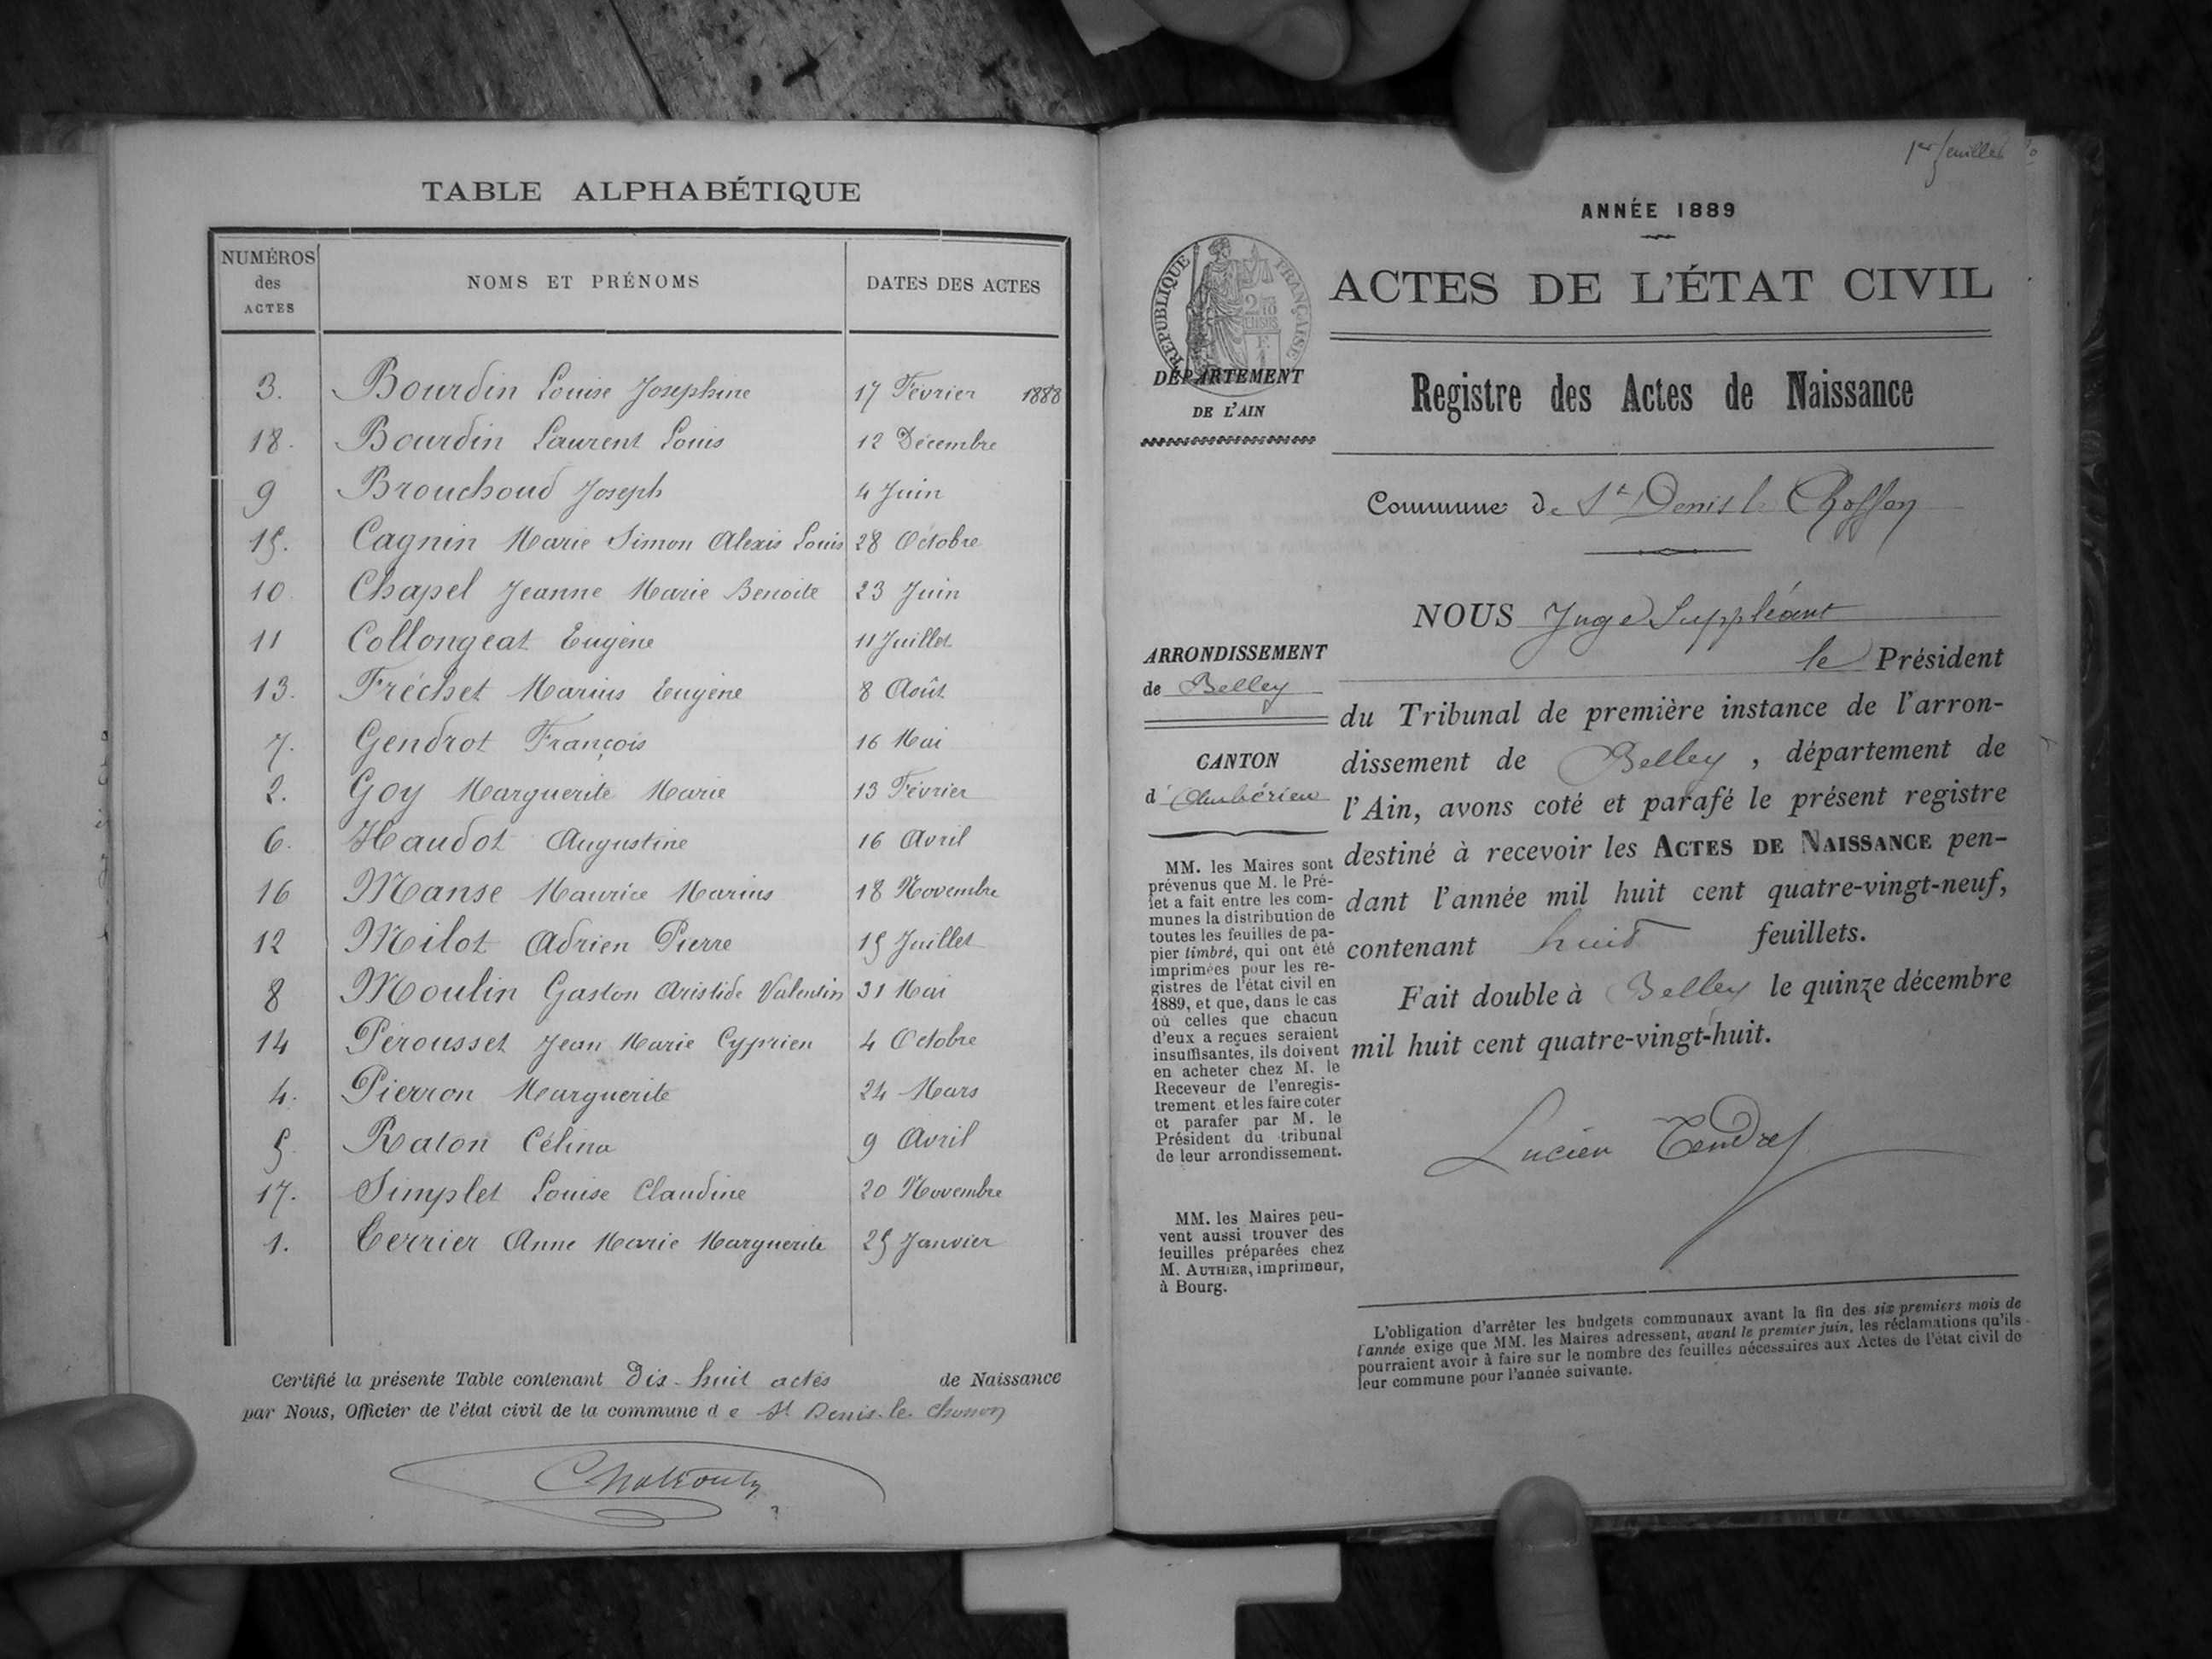 TABLE ALPHABÉTIQUE
NUMÉROS des ACTES
NOMS ET PRÉNOMS
DATES DES ACTES
3. Bourdin Louise Josephine 17 Février 1888
18. Bourdin Laurent Louis 12 Décembre
9 Brouchoud Joseph 4 Juin
15. Cagnin Marie Simon Alexis Louis 28 Octobre
10. Chapel Jeanne Marie Benoite 23 Juin
11 Collongeat Eugène 11 Juillet
13. Fréchet Marius Eugène 8 Août
7. Gendrot François 16 Mai
2. Goy Marguerite Marie 13 Février
6. Haudot Augustine 16 Avril
16 Manse Maurice Marius 18 Novembre
12 Milot Adrien Pierre 15 Juillet
8 Moulin Gaston Aristide Valentin 31 Mai
14 Perousset Jean Marie Cyprien 4 Octobre
4. Pierron Marguerite 24 Mars
5. Raton Célina 9 Avril
17. Simplet Louise Claudine 20 Novembre
1. Terrier Anne Marie Marguerite 25 Janvier
Certifié la présente Table contenant Dix-huit actes de Naissance
par Nous, Officier de l'état civil de la commune de St Denis-le-Chosson
1er feuillet
ANNÉE 1889
RÉPUBLIQUE FRANÇAISE
ACTES DE L'ÉTAT CIVIL
DÉPARTEMENT
DE L'AIN
Registre des Actes de Naissance
Commune de St Denis le Chosson
NOUS Juge Suppléant
le Président
ARRONDISSEMENT
de Belley
CANTON
d'Ambérieu
du Tribunal de première instance de l'arron-
dissement de Belley, département de
l'Ain, avons coté et parafé le présent registre
destiné à recevoir les ACTES DE NAISSANCE pen-
dant l'année mil huit cent quatre-vingt-neuf,
contenant huit feuillets.
Fait double à Belley le quinze décembre
mil huit cent quatre-vingt-huit.
Lucien Tendret
MM. les Maires sont
prévenus que M. le Pré-
fet a fait entre les com-
munes la distribution de
toutes les feuilles de pa-
pier timbré, qui ont été
imprimées pour les re-
gistres de l'état civil en
1889, et que, dans le cas
où celles que chacun
d'eux a reçues seraient
insuffisantes, ils doivent
en acheter chez M. le
Receveur de l'enregis-
trement et les faire coter
et parafer par M. le
Président du tribunal
de leur arrondissement.
MM. les Maires peu-
vent aussi trouver des
feuilles préparées chez
M. AUTHIER, imprimeur,
à Bourg.
L'obligation d'arrêter les budgets communaux avant la fin des six premiers mois de
l'année exige que MM. les Maires adressent, avant le premier juin, les réclamations qu'ils
pourraient avoir à faire sur le nombre des feuilles nécessaires aux Actes de l'état civil de
leur commune pour l'année suivante.